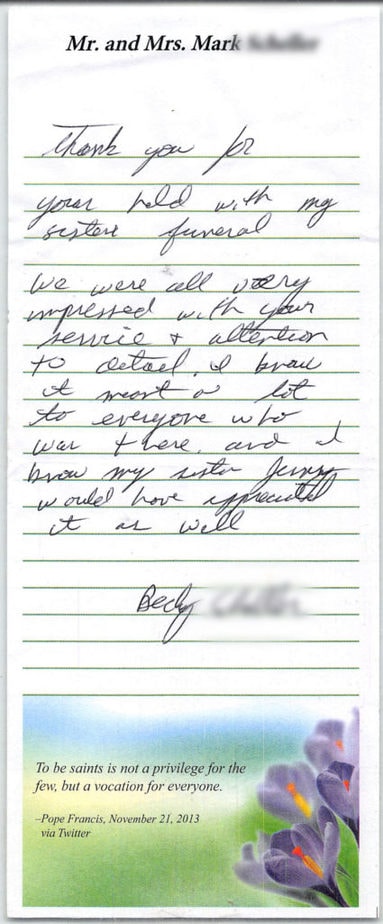 Mr. and Mrs. Mark
Thank you for
your held with my
sisters funeral
We were all very
impressed with your
service + attention
to detail. I know
it meant a lot
to everyone who
was there. and I
know my sister Jenny
would have appreciated
it as well
Becky
To be saints is not a privilege for the
few, but a vocation for everyone.
–Pope Francis, November 21, 2013
via Twitter